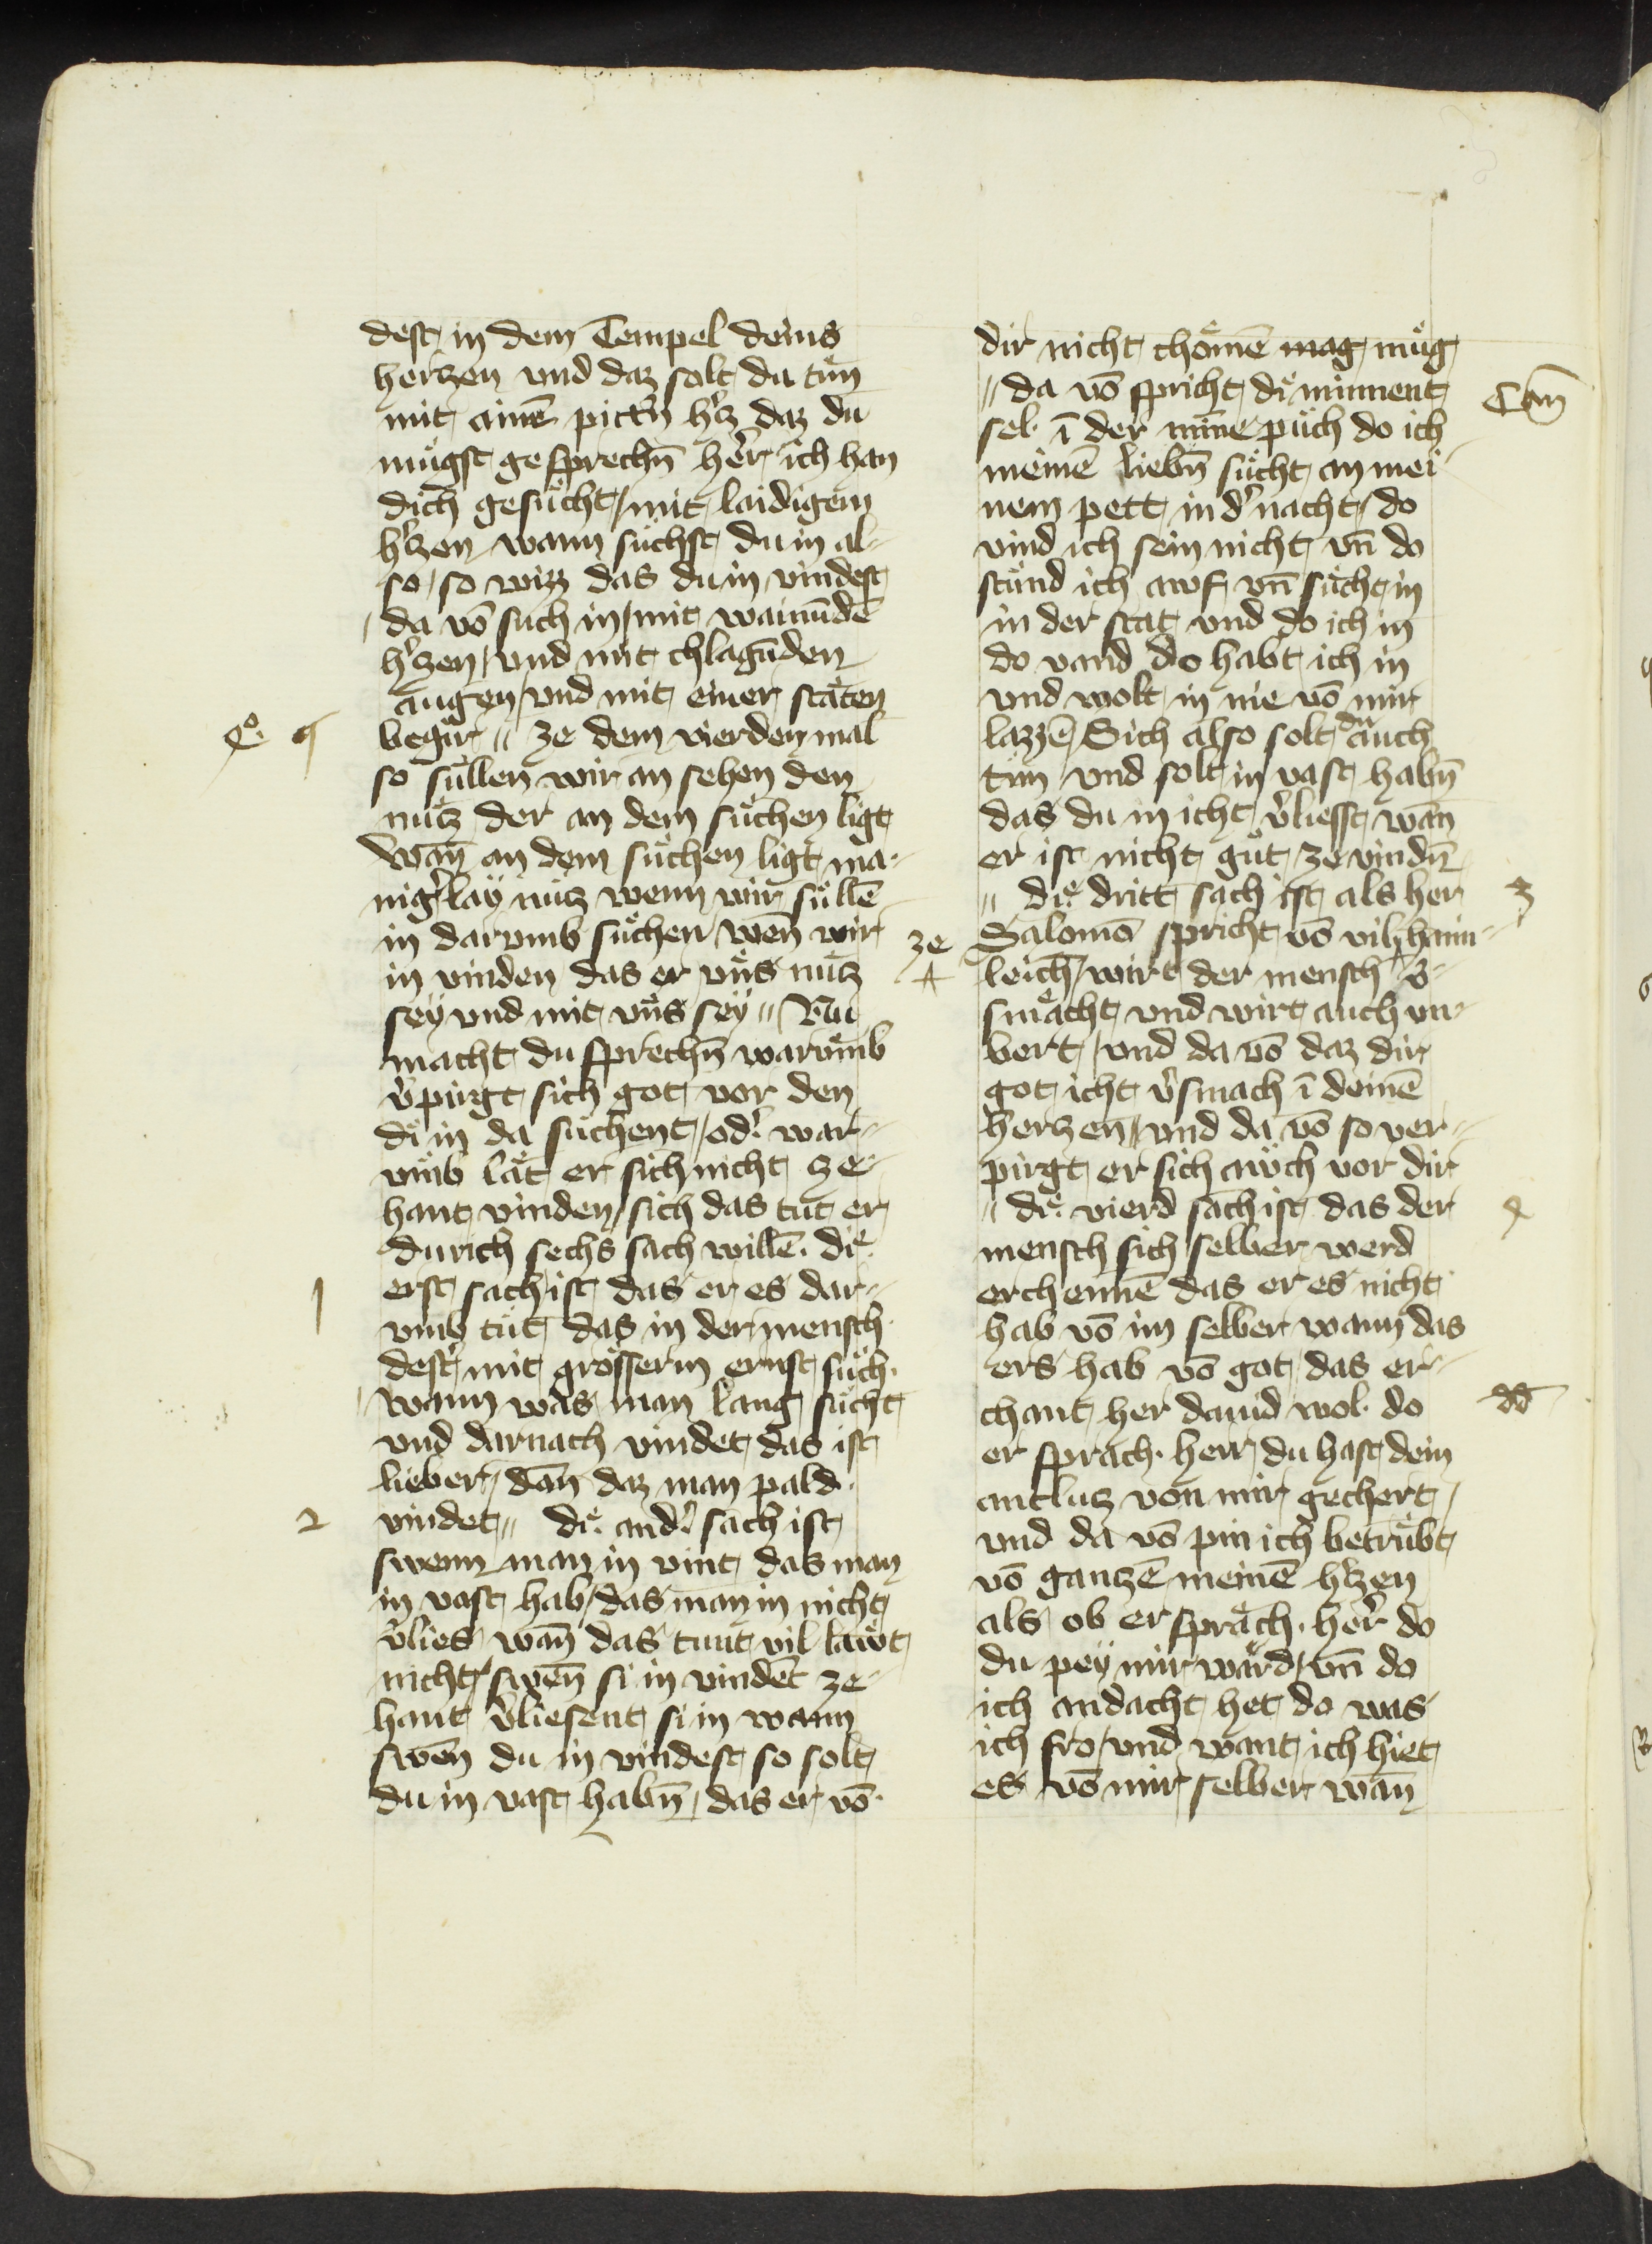 dest in dem Tempel deins
herczen vnd daz solt du tuͤn
mit ainē pittn̄ hʼcz daz du
muͤgst gesprechn̄ heʼr ich han
dich gesuͤcht / mit laidigem
hʼczen wann suͤchst du in al-
so / so wizz das du in vindest
/ da vō such in / mit wainūdē
hʼczen / vnd mit chlagūden
augen / vnd mit einer staͤten
begir // ze dem vierden mal
so suͤllen wir an sehen den
nuͤtz der an dem suͤchen ligt
Wan̄ an dem suͤchen ligt ma-
nigʼlaÿ nucz wenn wir suͤllē
in darvmb suͤchen / wen̄ wir
in vinden das er vns nucz
seÿ vnd mit vns seÿ // Nu
macht du sprechn̄ warvmb
vʼpirgt sich got vor den
di in da suͤchent / odʼ war-
vmb laͤt er sich nicht ze-
hant vinden / sich das tut er
durich sechs sach willē . die
erst sach ist das er es dar-
vmb tuͤt das in der mensch
destʼ mit groͤsserm ernst suͤch .
/ wann was man lang suͤcht
vnd darnach vindet das ist
lieber / dan̄ daz man pald .
vindet // die andʼ sach ist
swenn man in vint das man
in vast hab / das man in nicht
vʼlies / wan̄ das tunt vil laͤwt
nicht / swen̄ si in vindet ze-
hant vʼliesent si in wann
swen̄ du in vindest so solt
du in vast habn̄ / das er vō
dir nicht choͤmē mag muͤg
// da vō spricht die minnent
sel . ī der mīne puͤch do ich
meinē liebn̄ suͤcht an mei-
nem pett in dʼ nacht / do
vind ich sein nicht vn̄ do
stuͤnd ich awf vn̄ suͤcht in
in der stat vnd do ich in
do vand do habt ich in
vnd wolt in nie vō mir
lazzē / Sich also solt du auch
tun vnd solt in vast habn̄
das du in icht vʼliesst wan̄
er ist nicht guͤt ze vindn̄
// die dritt sach ist als her
Salomō spricht vō vil haim-
leich / wirt der mensch vʼ-
smaͤcht vnd wirt auch vn-
wert / vnd da vō daz dir
got icht vʼsmach ī deinē
herczen / vnd da vō so ver-
pirgt er sich auͤch vor dir
// die vierd sach ist das der
mensch sich selber werd
erchennē das er es nicht
hab vō im selber wann das
ers hab vō got / das er-
chant her dauid wol . do
er sprach . herr du hast dein
antlucz von mir gechert /
vnd da vō pin ich betruͤbt
vō gantzē meinē hʼczen
als ob er spraͤch . heʼr do
du peÿ mir waͤrd / vn̄ do
ich andacht het do was
ich fro / vnd want ich hiet
es vō mir selber wan̄
qͦ. 4
1
2
Cān
3
ze
4
dd